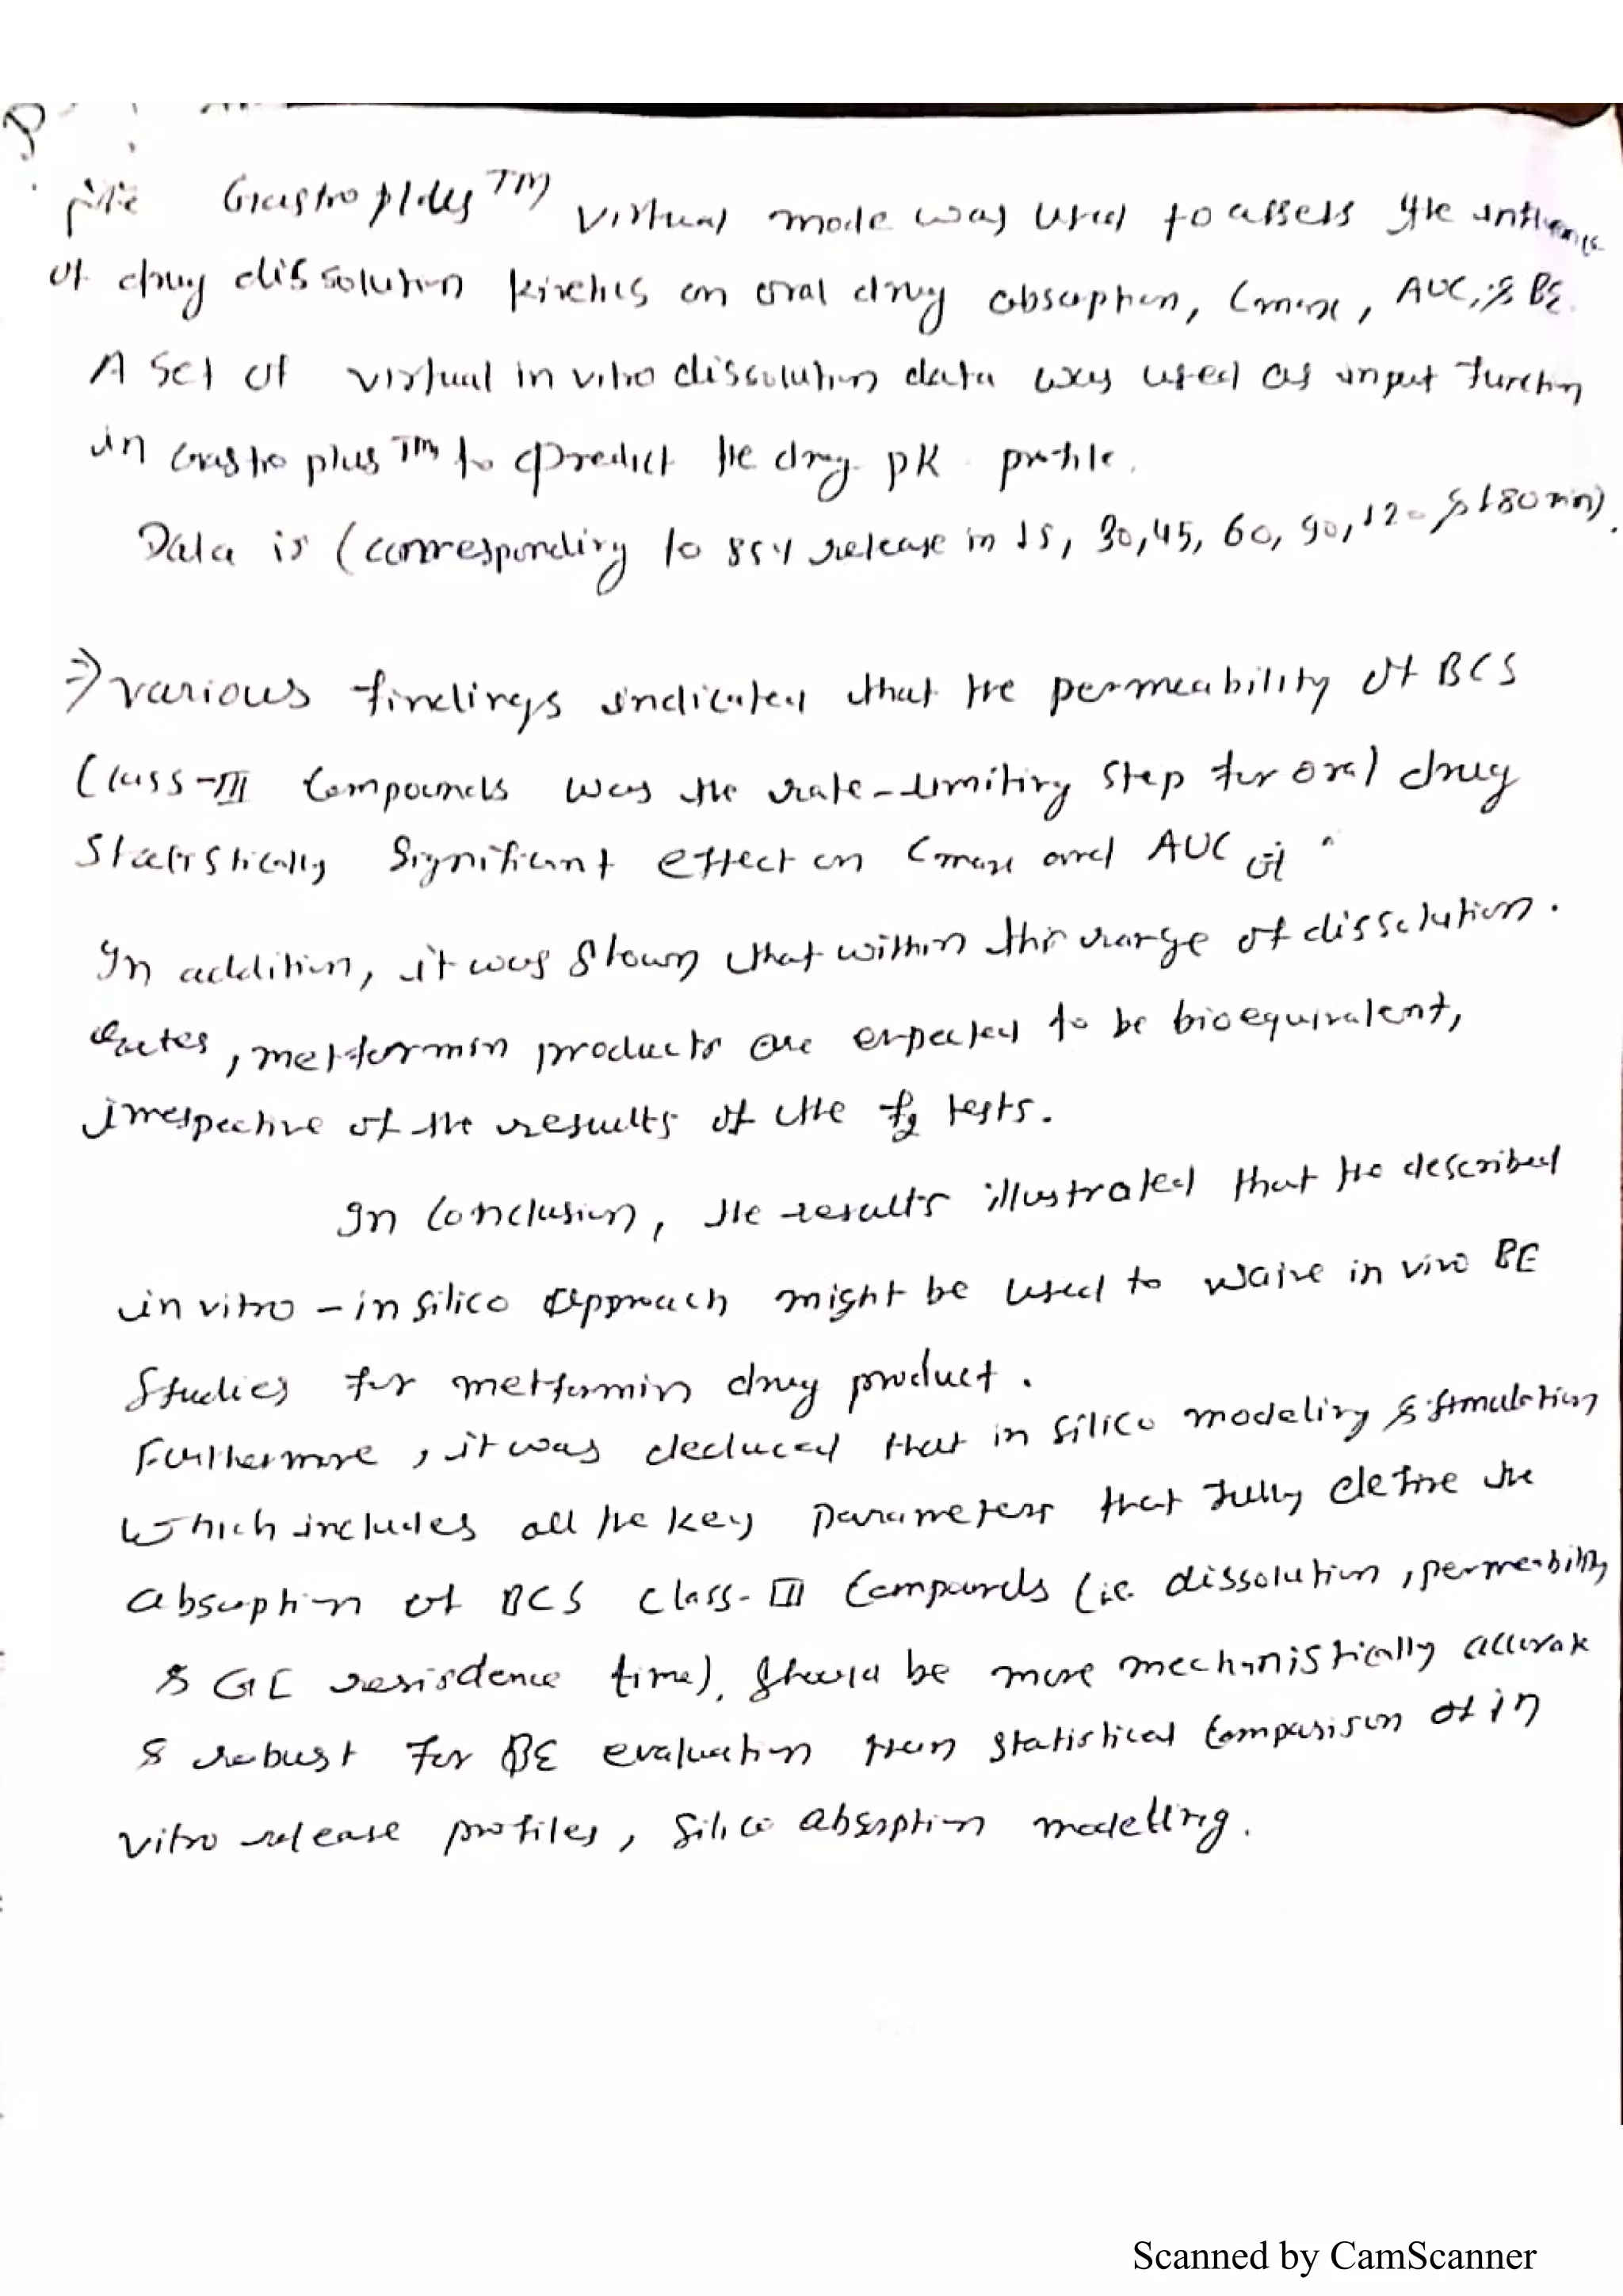 The GastroplusTM virtual mode was used to assess the influence
of drug dissolution kinetics on oral drug absorption, Cmax, AUC, & BE.
A set of virtual in vitro dissolution data was used as input function
in Gastro plusTM to predict the drug pK profile.
Data is (corresponding to 85% release in 15, 30, 45, 60, 90, 120 & 180 min).
⇒ various findings indicated that the permeability of BCS
Class-III Compounds was the rate-limiting step for oral drug
Statistically Significant effect on Cmax and AUC of
In addition, it was shown that within this range of dissolution.
rates, metformin products are expected to be bioequivalent,
irrespective of the results of the f2 tests.
In Conclusion, the results illustrated that the described
in vitro - in silico approach might be used to waive in vivo BE
Studies for metformin drug product.
Furthermore, it was deduced that in silico modeling & simulation
which includes all the key parameters that fully define the
absorption of BCS Class-III Compounds (i.e. dissolution, permeability
& GI resisdence time), should be more mechanistically accurate
& robust for BE evaluation than statistical comparison of in
vitro release profiles, silico absorption modelling.
Scanned by CamScanner